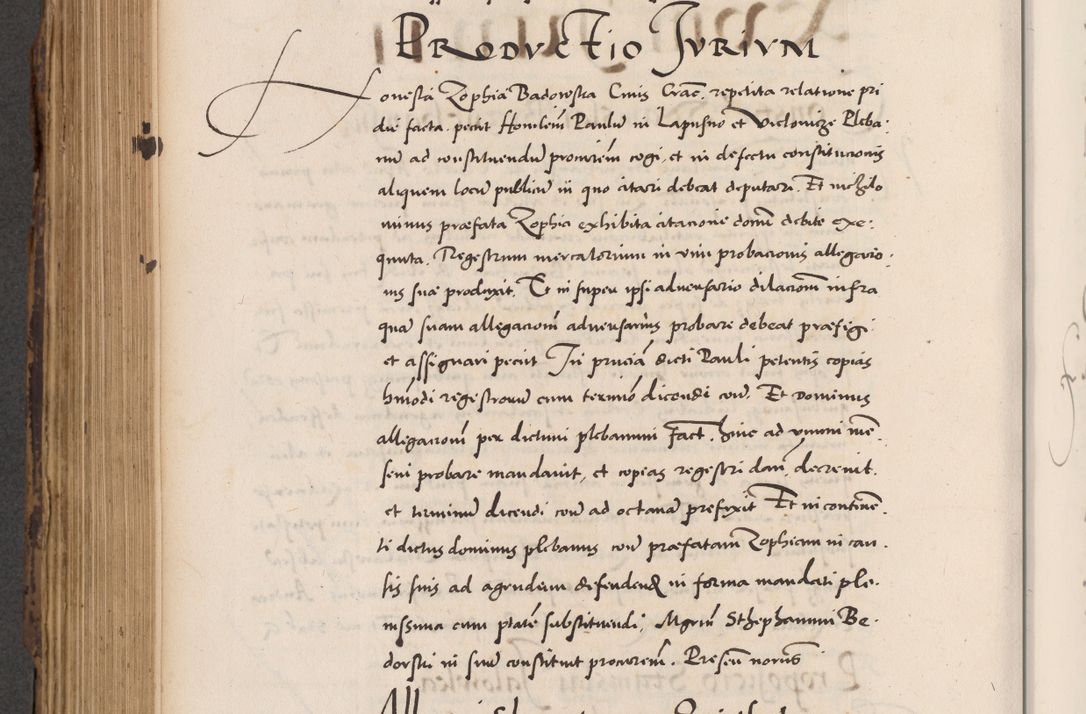 Prodvctio Jvrivm
Honesta Zophia Badowska Civis Crac. repetita relatione pri
die facta. petiit Honorabilem Paulum in Lapusno et Vielovicze Pleba:
num ad constituendum procurem cogi, et in defectu constitucionis
aliquem locum publicum in quo citari debeat deputari. Et nichilo
minus præfata Zophia exhibita citacione domi debite exe:
quuta. Regestrum mercatorium in vim probacionis allegacio:
nis suæ produxit. Et in super ipsi adversario dilacionem infra
quam suam allegacionem adversarius probare debeat præfigi
et assignari petiit In præsenciam dicti Pauli petentis copias
hmodi regestrorum cum termino dicendi contra. Et Dominus
allegacionem per dictum plebanum fact. hinc ad unum me
sem probare mandavit, et copias regestri dari decrevit.
et terminum dicendi contra ad octavam prefixit Et in contine
ti dictus dominus plebanus contra præfatam Zophiam in cau.
sis suis ad agendum defendendum in forma mandati ple.
nissima cum ptate substituendi. Mgrum Sthephanum Be.
dorski in suum constituit procurem. Presen notris